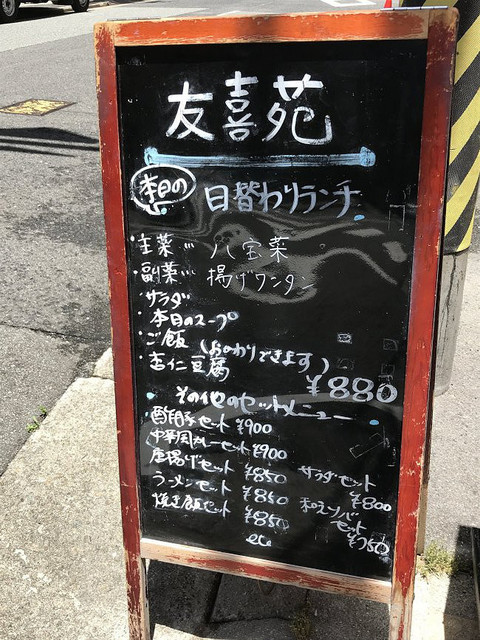 友喜苑
本日の 日替わりランチ
・主菜… 八宝菜
・副菜… 揚げワンタン
・サラダ
・本日のスープ
・ご飯 (おかわりできます)
・杏仁豆腐
¥880
その他のセットメニュー
酢豚セット ¥900
中華風カレーセット ¥900
唐揚げセット ¥850
ラーメンセット ¥850
焼き飯セット ¥850
サラダセット
¥800
和えソバ
セット
¥750
etc